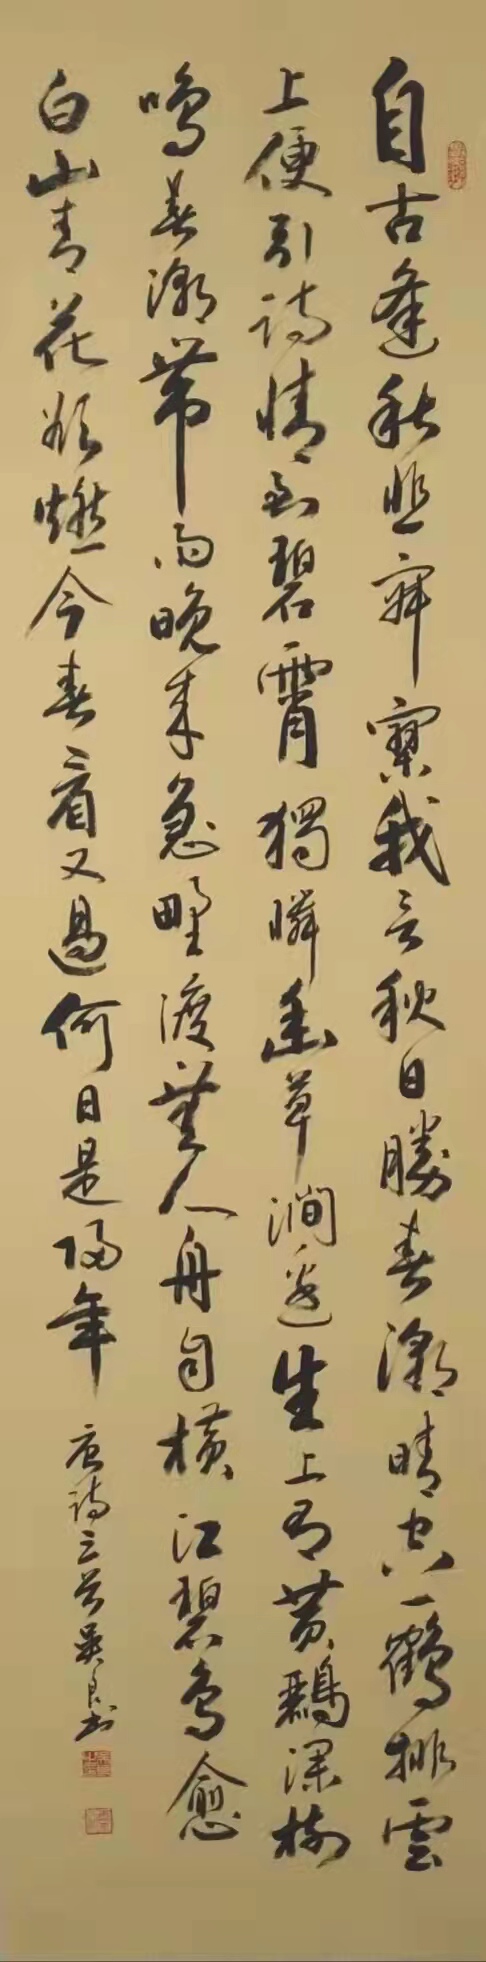 自古逢秋悲寂寥我言秋日勝春潮晴空一鶴排雲
上便引詩情到碧霄獨憐幽草澗邊生上有黃鸝深樹
鳴春潮帶雨晚來急野渡無人舟自橫江碧鳥愈
白山青花欲燃今春看又過何日是歸年
唐詩三首吳良书